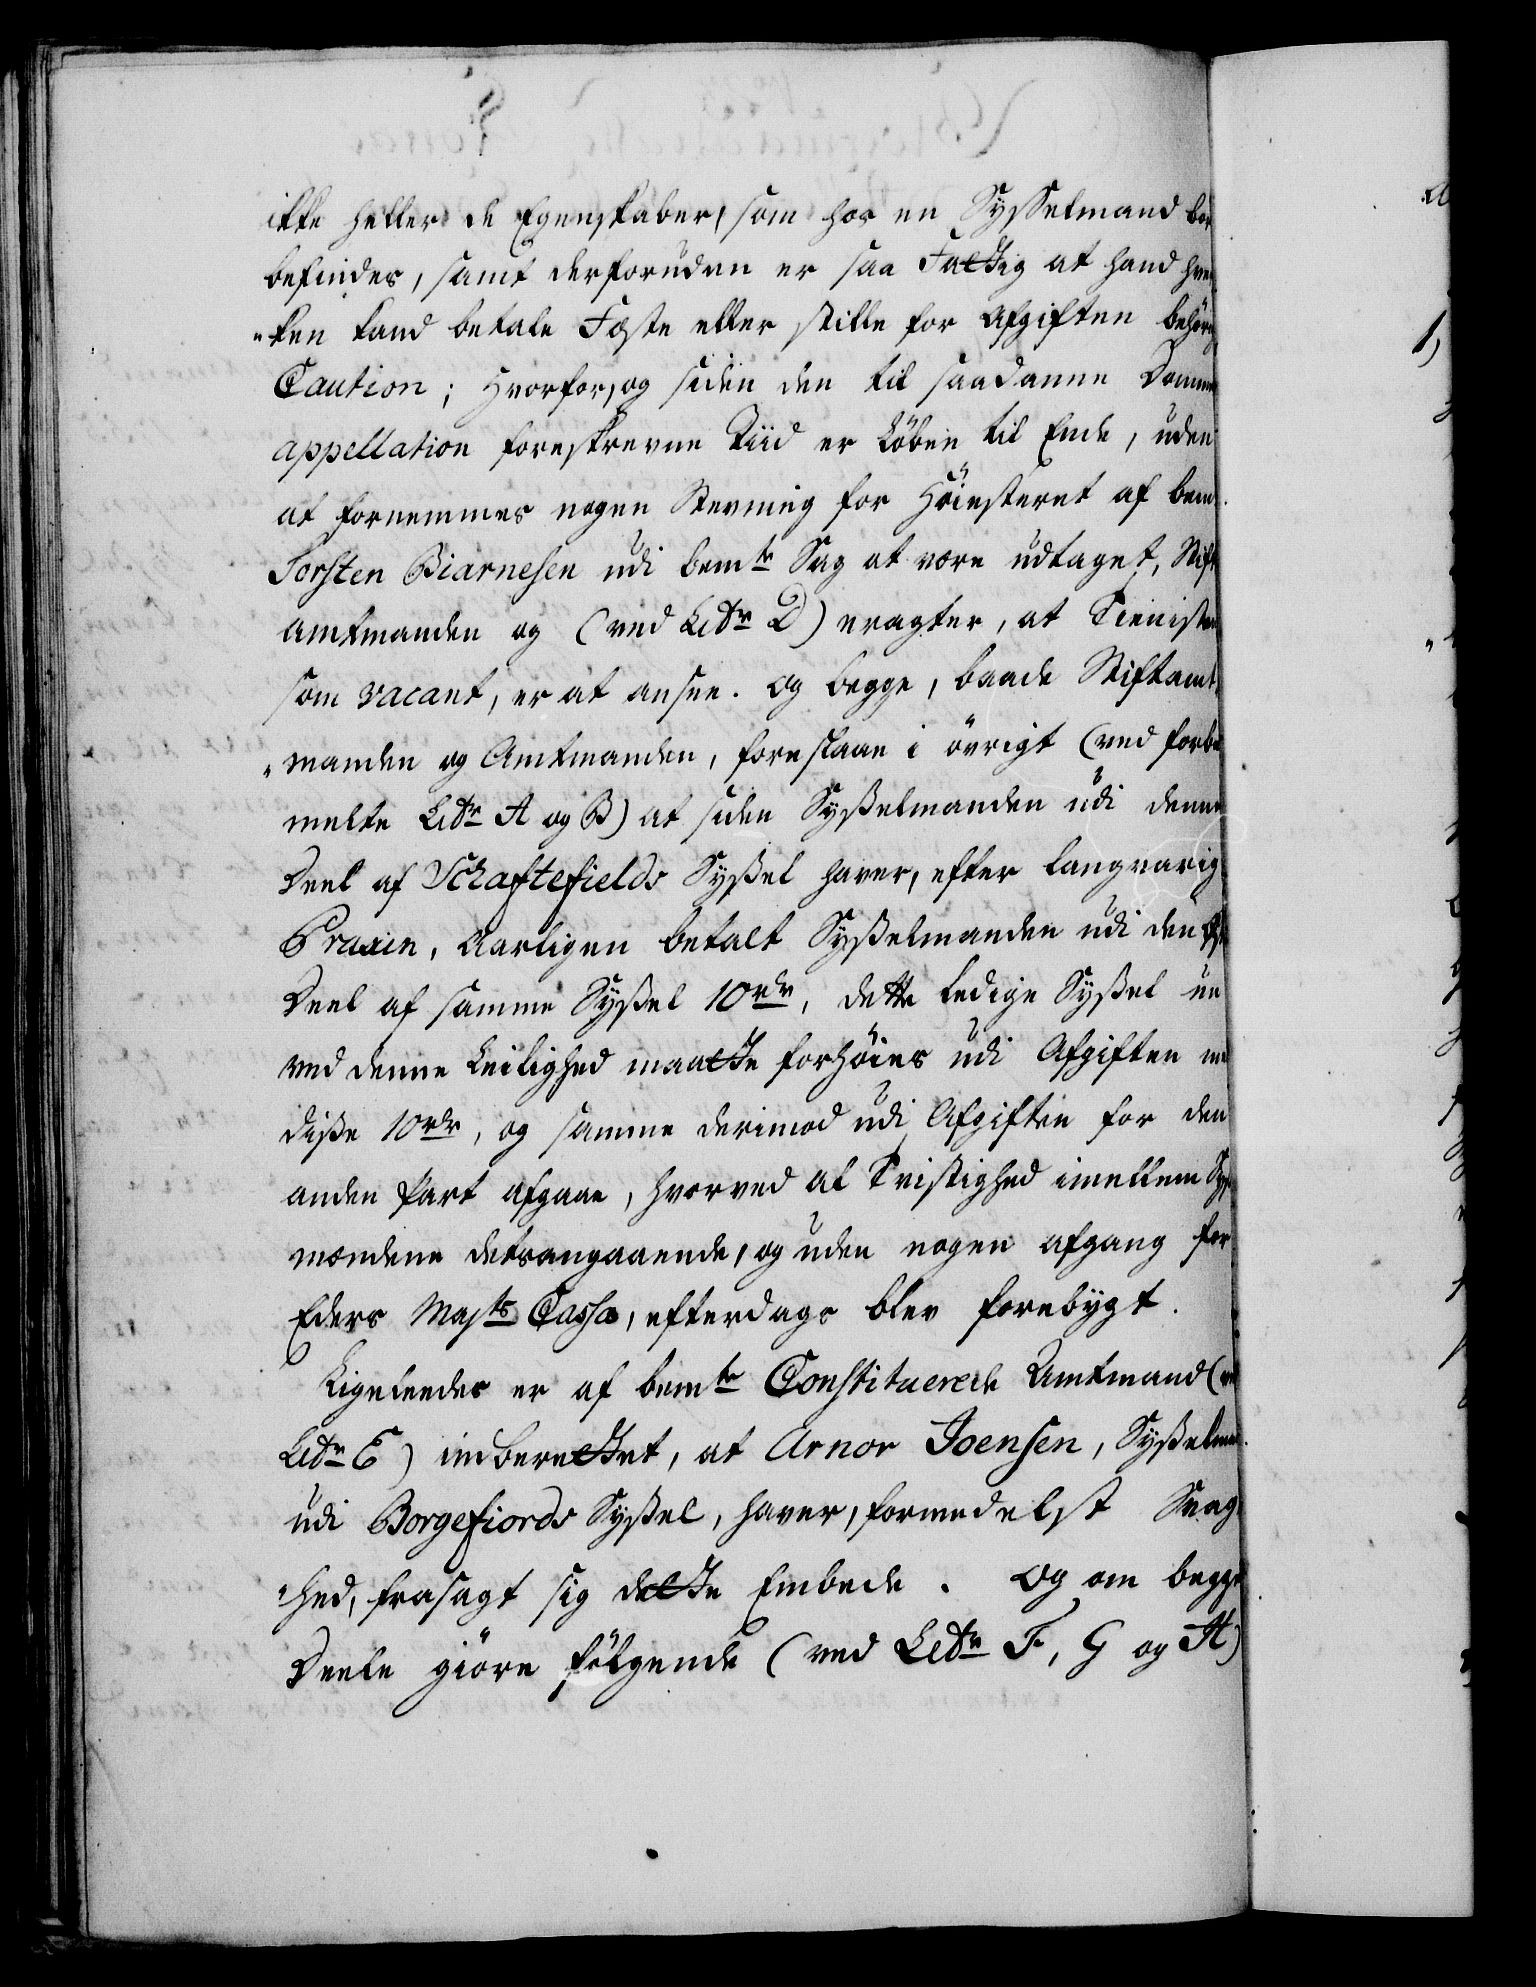 ikke heller de Egenskaber, som hos en Sysselmand bør
befindes, samt desforuden er saa Fattig at hand hver
"ken kand betale Fæste eller stille for Afgiften behørig
Caution; Hvorfor, og siden den til saadanne Domme
appellation foreskrevne Tiid er løben til Ende, uden
at fornemmes nogen Stevning for Höiesteret af bem.
Torsten Biarnesen udi bemte Sag at være udtaget, Stift
amtmanden og (ved Litr D) eragter, at Tienisten
som vacant, er at ansee. og begge, baade Stiftamt
"manden og Amtmanden, foreslaae i övrigt (ved forbe
melte Litr A og B) at siden Sysselmanden udi denne
Deel af Schaftefields Syssel haver, efter langvarig
Praxin, Aarligen betalt Sysselmanden udi den
Deel af samme Syssel 10rdr, dette ledige Syssel
ved denne Leilighed maatte forhöies udi Afgiften
disse 10rdr, og samme derimod udi Afgiften for den
anden Part afgaae, hvorved al Tvistighed imellem
mændene detsangaaende, og uden nogen afgang for
Eders Mayts Cassa, efterdags blev forebygt.
Ligeleedes er af bemte Constituerede Amtmand
Litr E) indberettet, at Arnor Joensen, Sysselm
udi Borgefiords Syssel, haver, formedelst Svag
"hed, frasagt sig dette Embede. Og om begge
Deele giöre fölgende (ved Litr F, G og H)